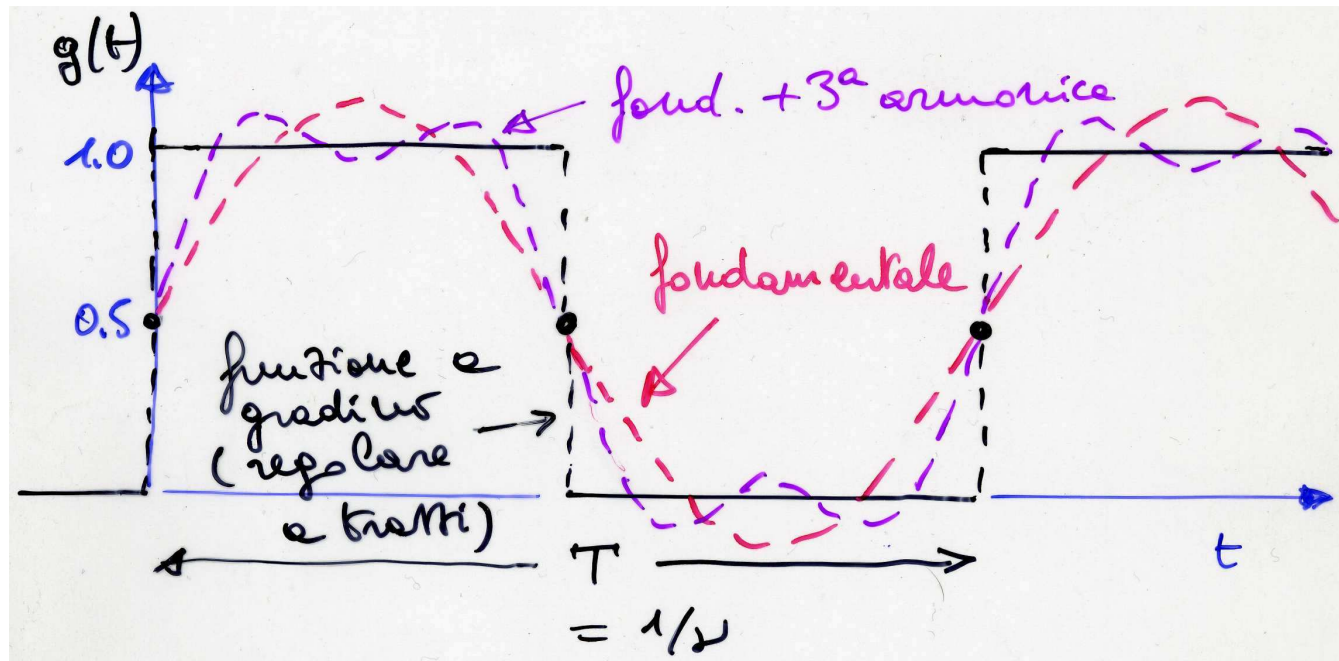 g(t)
fond. + 3ª armonica
1.0
fondamentale
0.5
funzione a
gradino
(regolare
a tratti)
T
t
= 1/ν